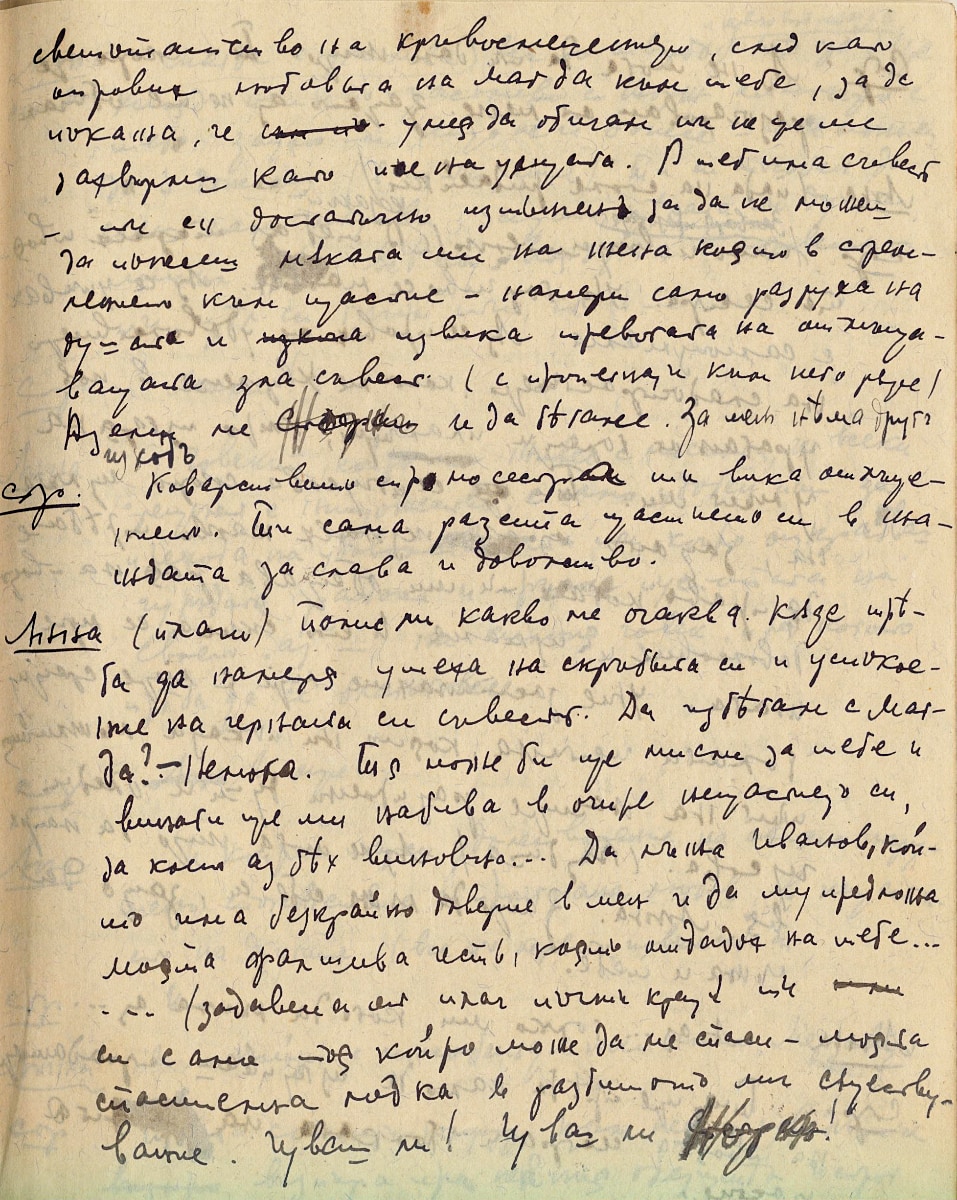 светотатство на кръвосмещение, след като
отрових любовта на Магда към тебе, за да
покажа, че умея да обичам ти не ще ме
захвърлиш като псе на улицата. В теб има съвест
– ти си достатъчно за да не можеш
да понесеш мъката ми на жена която в стрем-
лението към щастие – намери само разруха на
душата и извика тревогата на отмъща-
ващата зла съвест. (с към него ръце)
Вземи ме и да бѣгаме. За мен нѣма другъ
изходъ
Стр. Коварството спрямо сестра ти вика отмъще-
нието. Ти сама разсипа щастието си в жа-
ждата за слава и доволство.
Анна (плаче) Помисли какво ме очаква. Къде трѣ-
ба да намеря утеха на скръбьта си и успокое-
ние на черната си съвесть. Да избѣгам с Маг-
да? – Немога. Тя може би ще мисли за тебе и
винаги ще ми набива в очите нещастието си,
за което аз бѣх виновна... Да лъжа Иванов, кой-
то има безкрайно доверие в мен и да му предложа
моята фалшива честь, която отдадох на тебе...
... (задавена от плач почти крещи) ти
си само тоя който може да ме спаси – моята
спасителна лодка в разбитото ми съществу-
вание. Чуваш ли! Чуваш ли Жорж!